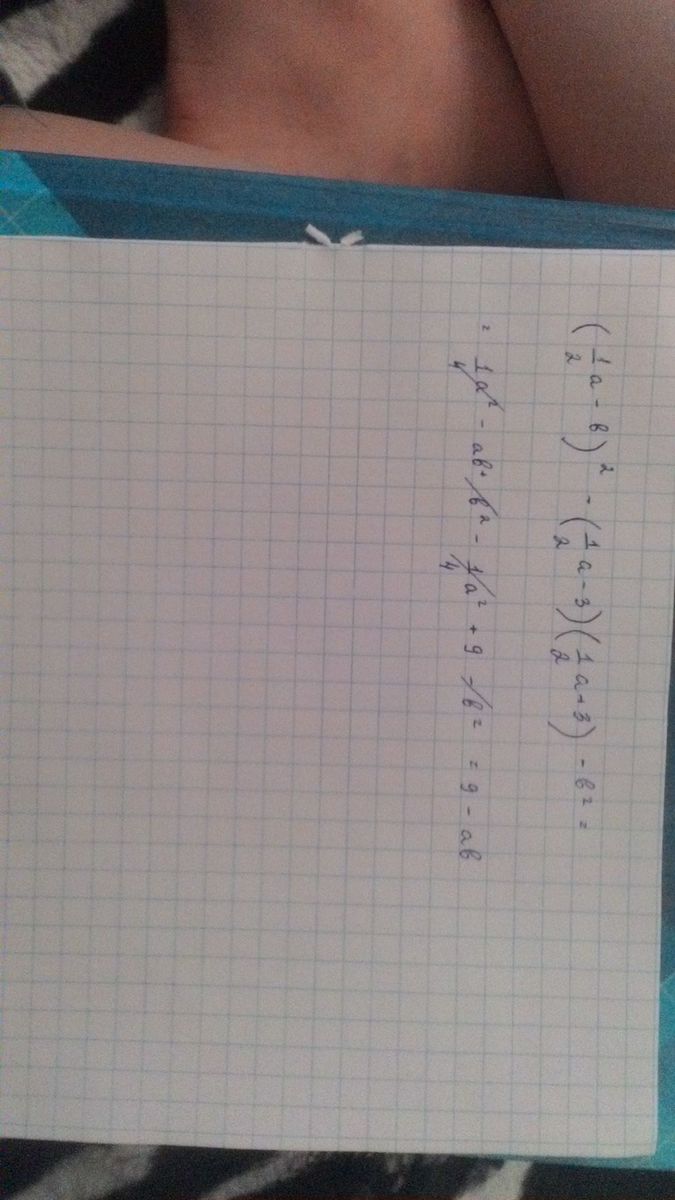 (1/2 a - b)² - (1/2 a - 3)(1/2 a + 3) - b² =
= 1/4 a² - ab + b² - 1/4 a² + 9 - b² = 9 - ab